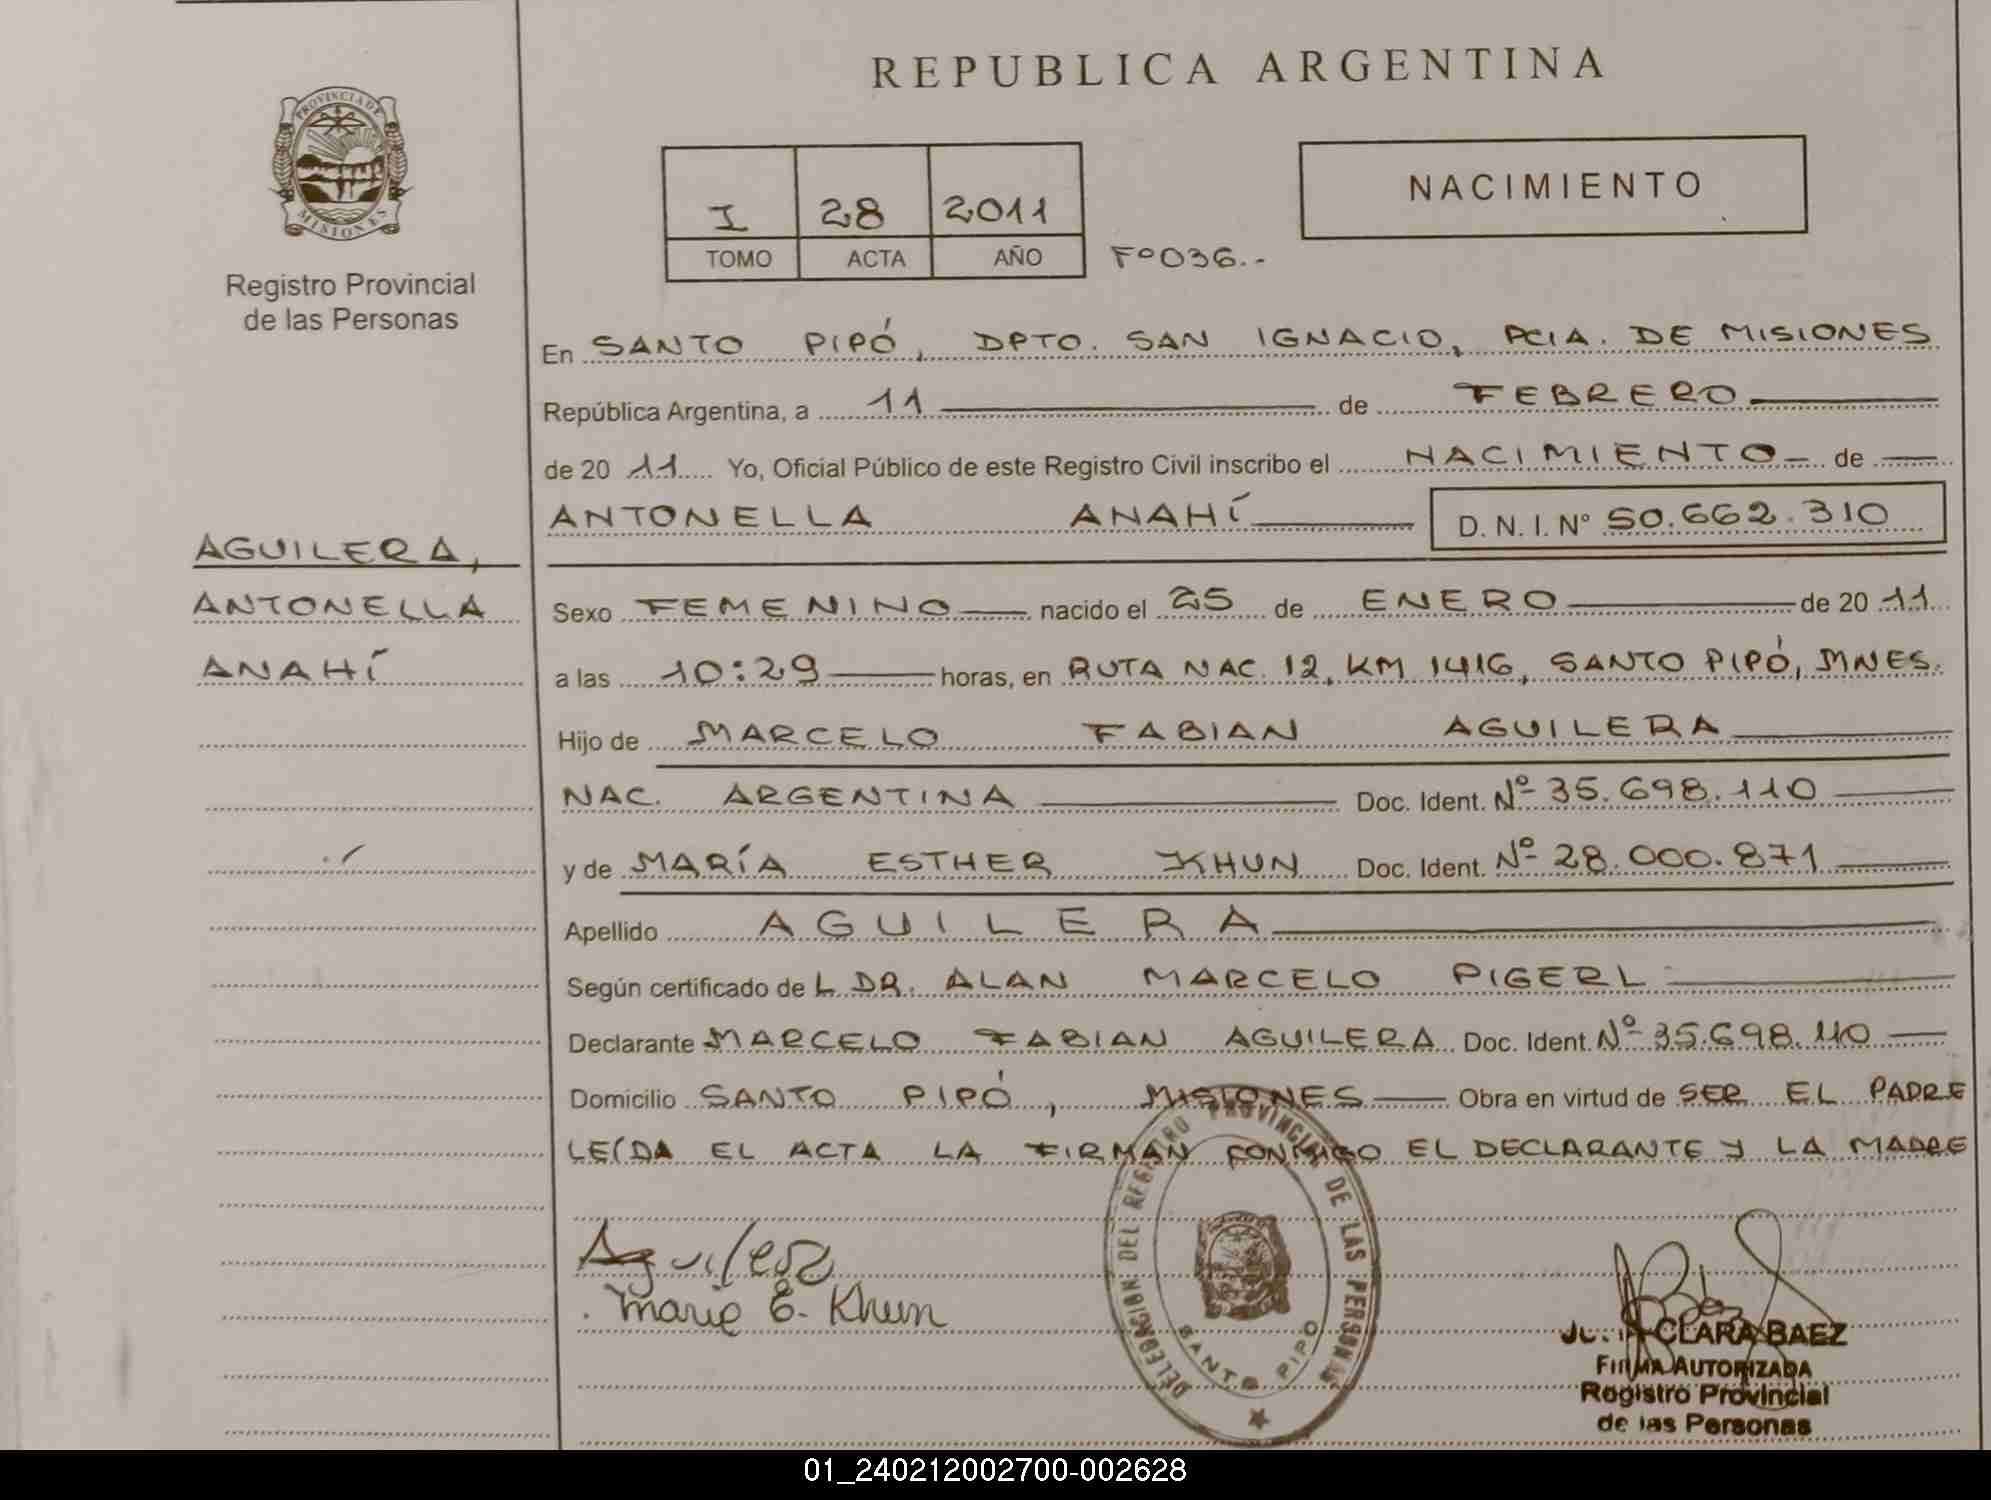 REPUBLICA ARGENTINA
PROVINCIA DE
MISIONES
Registro Provincial
de las Personas
I 28 2011
TOMO ACTA AÑO
Fº036..-
NACIMIENTO
En SANTO PIPÓ, DPTO. SAN IGNACIO, PCIA. DE MISIONES
República Argentina, a 11 de FEBRERO
de 20 11 Yo, Oficial Público de este Registro Civil inscribo el NACIMIENTO de
ANTONELLA ANAHÍ D. N. I. Nº 50.662.310
AGUILERA,
ANTONELLA
ANAHÍ
Sexo FEMENINO nacido el 25 de ENERO de 20 11
a las 10:29 horas, en RUTA NAC. 12, KM 1416, SANTO PIPÓ, MNES.
Hijo de MARCELO FABIAN AGUILERA
NAC. ARGENTINA Doc. Ident. Nº 35.698.110
y de MARÍA ESTHER KHUN Doc. Ident. Nº 28.000.871
Apellido AGUILERA
Según certificado de L DR. ALAN MARCELO PIGERL
Declarante MARCELO FABIAN AGUILERA Doc. Ident. Nº 35.698.110
Domicilio SANTO PIPÓ, MISIONES Obra en virtud de SER EL PADRE
LEÍDA EL ACTA LA FIRMAN CONMIGO EL DECLARANTE Y LA MADRE
Aguilera
Maria E. Khun
DELEGACION DEL REGISTRO PROVINCIAL DE LAS PERSONAS
SANTO PIPO
CLARA BAEZ
FIRMA AUTORIZADA
Registro Provincial
de las Personas
01_240212002700-002628